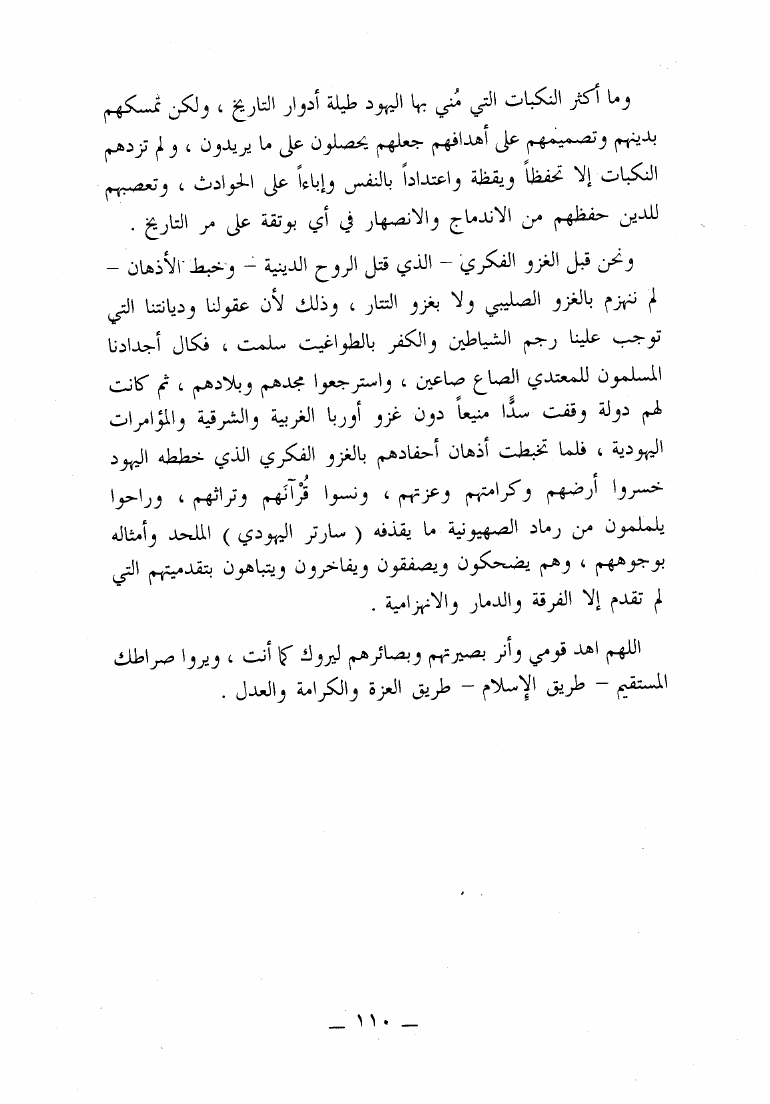 وما أكثر النكبات التي مُني بها اليهود طيلة أدوار التاريخ ، ولكن تمسكهم
بدينهم وتصميمهم على أهدافهم جعلهم يحصلون على ما يريدون ، ولم تزدهم
النكبات إلا تحفظاً ويقظة واعتداداً بالنفس وإباءاً على الحوادث ، وتعصبهم
للدين حفظهم من الاندماج والانصهار في أي بوتقة على مر التاريخ .
ونحن قبل الغزو الفكري – الذي قتل الروح الدينية – وخبط الأذهان –
لم ننهزم بالغزو الصليبي ولا بغزو التتار ، وذلك لأن عقولنا وديانتنا التي
توجب علينا رجم الشياطين والكفر بالطواغيت سلمت ، فكال أجدادنا
المسلمون للمعتدي الصاع صاعين ، واسترجعوا مجدهم وبلادهم ، ثم كانت
لهم دولة وقفت سدًّا منيعاً دون غزو أوربا الغربية والشرقية والمؤامرات
اليهودية ، فلما تخبطت أذهان أحفادهم بالغزو الفكري الذي خططه اليهود
خسروا أرضهم وكرامتهم وعزتهم ، ونسوا قُرْآنَهم وتراثهم ، وراحوا
يلملمون من رماد الصهيونية ما يقذفه ( سارتر اليهودي ) الملحد وأمثاله
بوجوههم ، وهم يضحكون ويصفقون ويفاخرون ويتباهون بتقدميتهم التي
لم تقدم إلا الفرقة والدمار والانهزامية .
اللهم اهد قومي وأنر بصيرتهم وبصائرهم ليروك كما أنت ، ويروا صراطك
المستقيم – طريق الإسلام – طريق العزة والكرامة والعدل .
– ١١٠ –